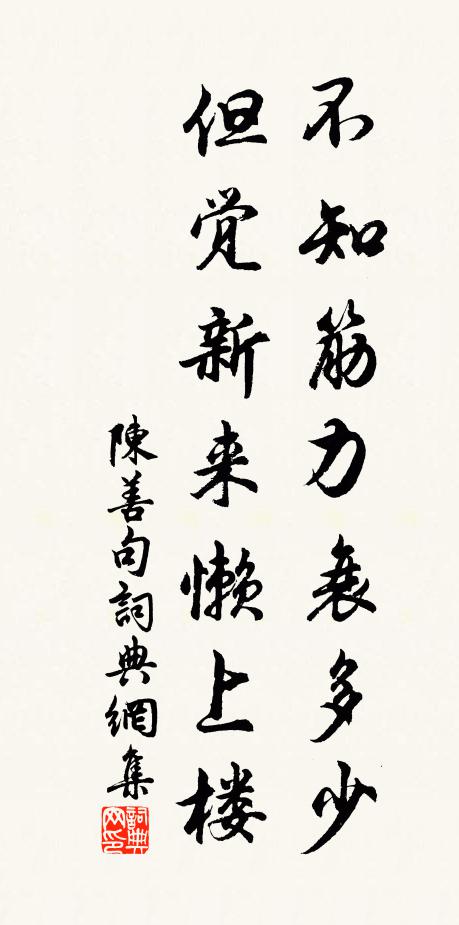 不知筋力衰多少
但觉新来懒上楼
陳善句詞典網集
詞典网印